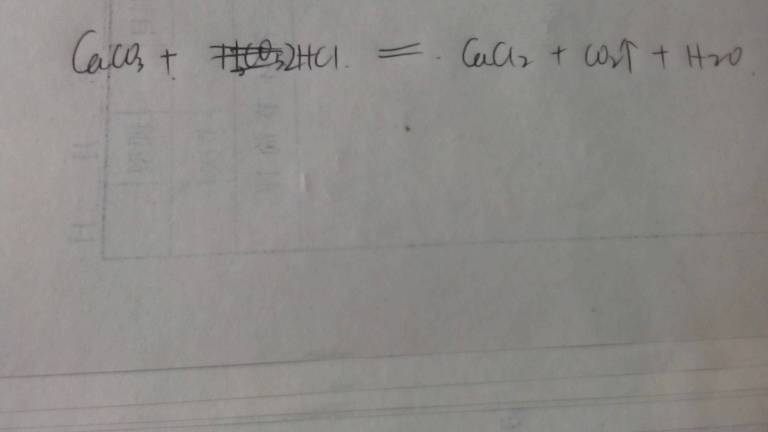 CaCO₃ + 2HCl = CaCl₂ + CO₂↑ + H₂O